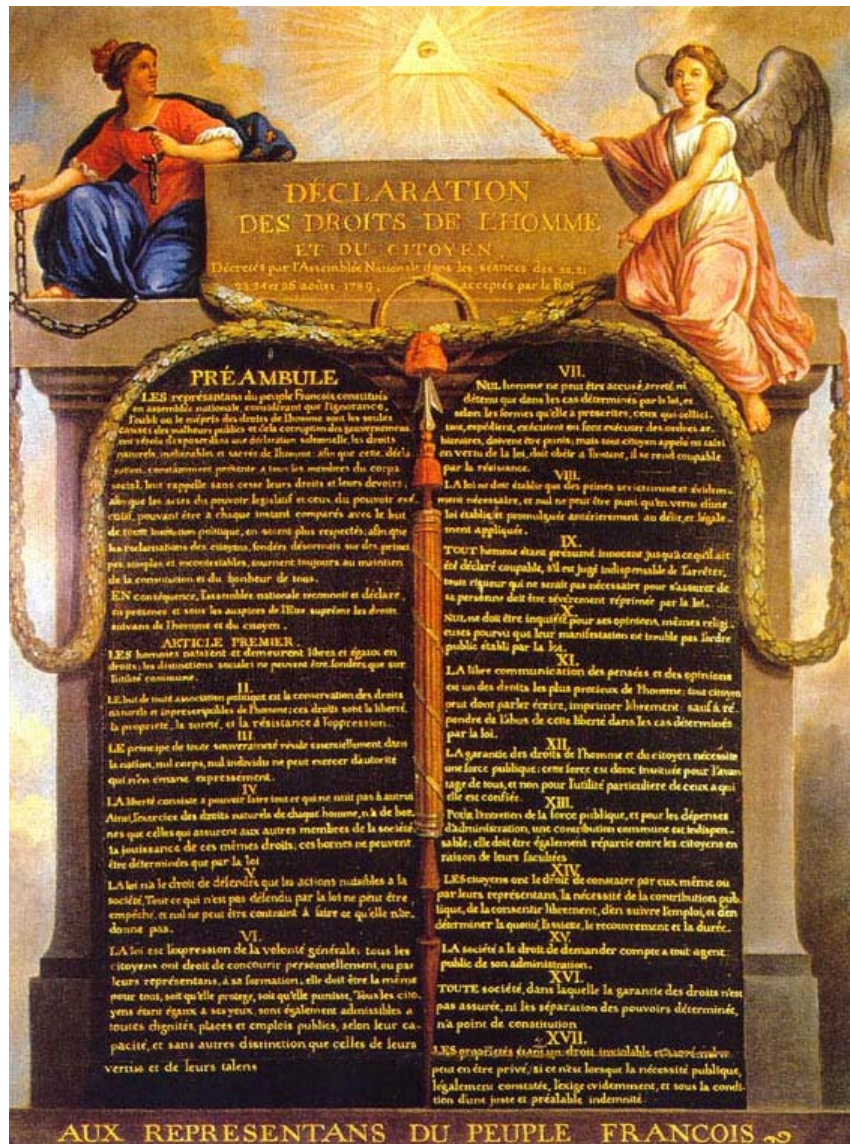 DÉCLARATION
DES DROITS DE L'HOMME
ET DU CITOYEN
Décretés par l'Assemblée Nationale dans les séances des 20, 21
23, 24 et 26 aoûst 1789, acceptés par le Roi
PRÉAMBULE
LES représentans du peuple François, constitués
en assemblée nationale, considérant que l'ignorance,
l'oubli ou le mépris des droits de l'homme sont les seules
causes des malheurs publics et de la corruption des gouvernemens
ont résolu d'exposer dans une déclaration solemnelle, les droits
naturels, inaliénables et sacrés de l'homme: afin que cette décla
ration, constamment présente a tous les membres du corps
social, leur rappelle sans cesse leurs droits et leurs devoirs,
afin que les actes du pouvoir législatif et ceux du pouvoir exé
cutif, pouvant être à chaque instant comparés avec le but
de toute institution politique, en soient plus respectés; afin que
les réclamations des citoyens, fondées désormais sur des princi
pes simples et incontestables, tournent toujours au maintien
de la constitution et du bonheur de tous.
EN conséquence, l'assemblée nationale reconnoit et déclare,
en presence et sous les auspices de l'Etre suprême les droits
suivans de l'homme et du citoyen.
ARTICLE PREMIER.
LES hommes naissent et demeurent libres et égaux en
droits; les distinctions sociales ne peuvent être fondées que sur
l'utilité commune.
II.
LE but de toute association politique est la conservation des droits
naturels et imprescriptibles de l'homme; ces droits sont la liberté,
la propriété, la sureté, et la résistance à l'oppression.
III.
LE principe de toute souveraineté réside essentiellement dans
la nation, nul corps, nul individu ne peut exercer d'autorité
qui n'en émane expressément.
IV
LA liberté consiste a pouvoir faire tout ce qui ne nuit pas à autrui
Ainsi, l'exercice des droits naturels de chaque homme, n'a de bor_
nes que celles qui assurent aux autres membres de la société
la jouissance de ces mêmes droits; ces bornes ne peuvent
être déterminées que par la loi
V.
LA loi n'a le droit de défendre que les actions nuisibles a la
société. Tout ce qui n'est pas défendu par la loi ne peut être
empêché, et nul ne peut être contraint à faire ce qu'elle n'or_
donne pas.
VI.
LA loi est l'expression de la volonté générale; tous les
citoyens ont droit de concourir personnellement, ou par
leurs représentans, à sa formation; elle doit être la même
pour tous, soit qu'elle protege, soit qu'elle punisse, Tous les cito_
yens étant égaux à ses yeux, sont également admissibles a
toutes dignités, places et emplois publics, selon leur ca_
pacité, et sans autres distinction que celles de leurs
vertus et de leurs talens
VII.
NUL homme ne peut être accusé, arreté, ni
détenu que dans les cas déterminés par la loi, et
selon les formes qu'elle a prescrites, ceux qui sollici_
tent, expédient, exécutent ou font exécuter des ordres ar_
bitraires, doivent être punis; mais tout citoyen appelé ou saisi
en vertu de la loi, doit obéir a l'instant, il se rend coupable
par la résistance.
VIII.
LA loi ne doit établir que des peines strictement et évidem_
ment nécessaire, et nul ne peut être puni qu'en vertu d'une
loi établie et promulguée antérierement au délit, et légale_
ment appliquée.
IX.
TOUT homme étant présumé innocent jusqu'a ce qu'il ait
été déclaré coupable, s'il est jugé indispensable de l'arrêter,
toute rigueur qui ne serait pas nécessaire pour s'assurer de
sa personne doit être sévèrement réprimée par la loi.
X.
NUL ne doit être inquiété pour ses opinions, mêmes religi_
euses pourvu que leur manifestation ne trouble pas l'ordre
public établi par la loi.
XI.
LA libre communication des pensées et des opinions
est un des droits les plus précieux de l'homme: tout citoyen
peut dont parler écrire, imprimer librement: sauf à ré_
pondre de l'abus de cette liberté dans les cas déterminés
par la loi.
XII.
LA garantie des droits de l'homme et du citoyen nécessite
une force publique; cette force est donc instituée pour l'avan_
tage de tous, et non pour l'utilité particuliere de ceux a qui
elle est confiée.
XIII.
Pour l'entretien de la force publique, et pour les dépenses
d'administration, une contribution commune est indispen_
sable; elle doit être également répartie entre les citoyens en
raison de leurs facultées
XIV.
LES citoyens ont le droit de constater par eux même ou
par leurs représentans, la nécessité de la contribution pub_
lique, de la consentir librement, d'en suivre l'emploi, et d'en
déterminer la quotité, l'assiete, le recouvrement et la durée.
XV.
LA société a le droit de demander compte a tout agent
public de son administration.
XVI.
TOUTE société, dans laquelle la garantie des droits n'est
pas assurée, ni les séparation des pouvoirs déterminée,
n'a point de constitution
XVII.
LES propriétés étant un droit inviolable et sacré, nul ne
peut en être privé, si ce n'est lorsque la nécessité publique,
légalement constatée, l'exige evidemment, et sous la condi_
tion d'une juste et préalable indemnité.
AUX REPRESENTANS DU PEUPLE FRANCOIS